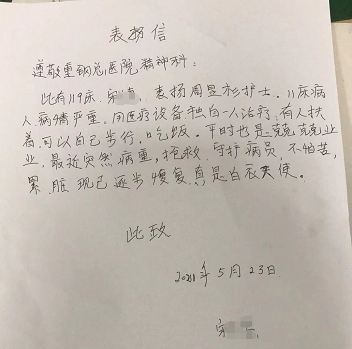 表扬信
尊敬重钢总医院精神科:
此有119床,宋 ,表扬周昱杉护士。11床病
人病情严重。用医疗设备独自一人治疗,有人扶
着,可以自己步行,吃饭。平时也是兢兢克业
业,最近突然病重,抢救,守护病员,不怕苦,
累,脏,现已逐步恢复,真是白衣天使。
此致
2021年5月23日
宋